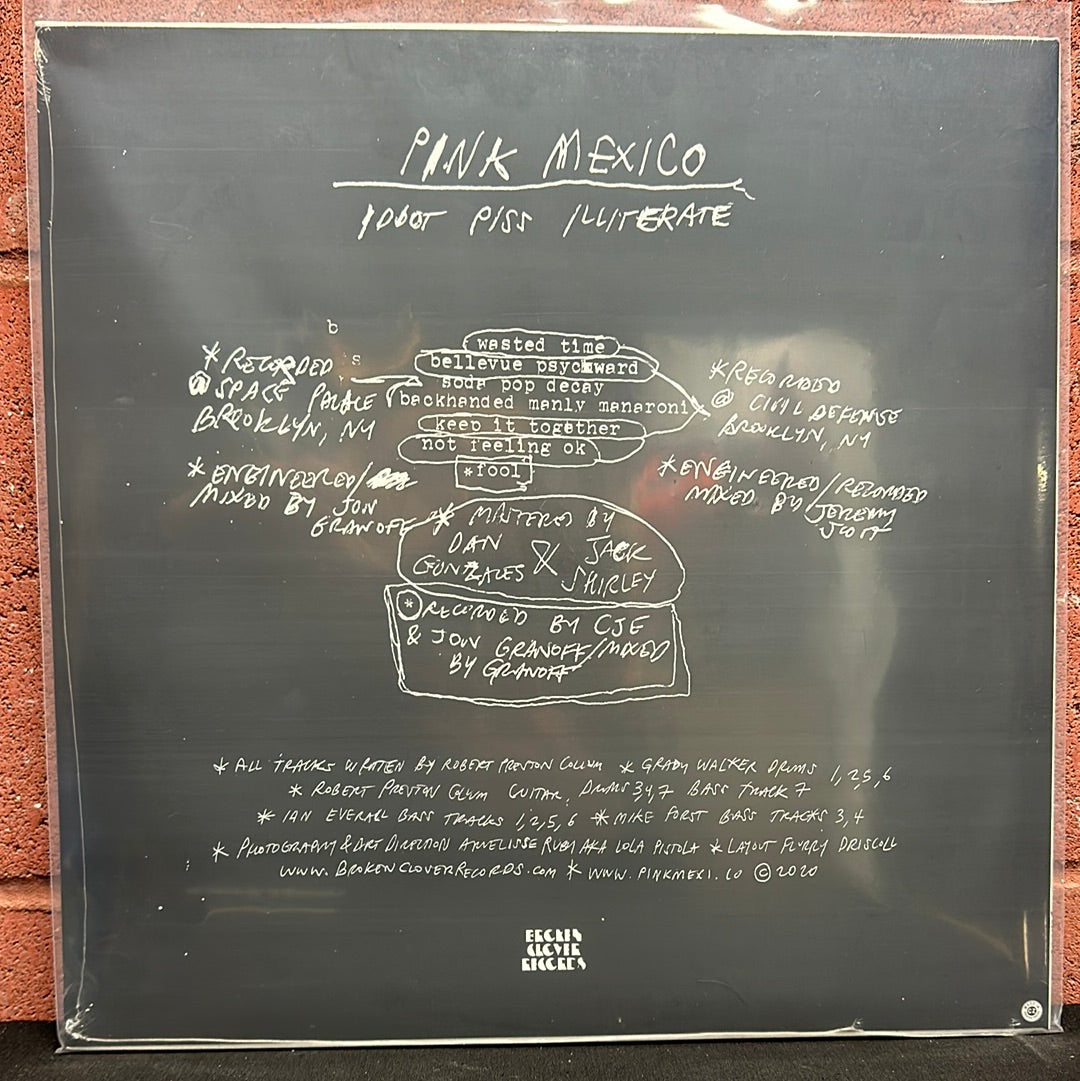 PINK MEXICO
IDIOT PISS ILLITERATE
b
s
wasted time
bellevue psychward
soda pop decay
backhanded manly manaroni
keep it together
not feeling ok
*fool
* RECORDED
@ SPACE PALACE
BROOKLYN, NY
* ENGINEERED/
MIXED BY JON
GRANOFF
* RECORDED
@ CIVIL DEFENSE
BROOKLYN, NY
* ENGINEERED/RECORDED
MIXED BY JEREMY
SCOTT
* MASTERED BY
DAN & JACK
GONZALES SHIRLEY
* RECORDED BY CJE
& JON GRANOFF/MIXED
BY GRANOFF
* ALL TRACKS WRITTEN BY ROBERT PRESTON COLLUM * GRADY WALKER DRUMS 1,2,5,6
* ROBERT PRESTON COLLUM GUITAR, DRUMS 3,4,7 BASS TRACK 7
* IAN EVERALL BASS TRACKS 1,2,5,6 * MIKE FORST BASS TRACKS 3,4
* PHOTOGRAPHY & ART DIRECTION RUBY AKA LOLA PISTOLA * LAYOUT FLURRY DRISCOLL
WWW.BROKENCLOVERRECORDS.COM * WWW.PINKMEXI.CO © 2020
BROKEN
CLOVER
RECORDS